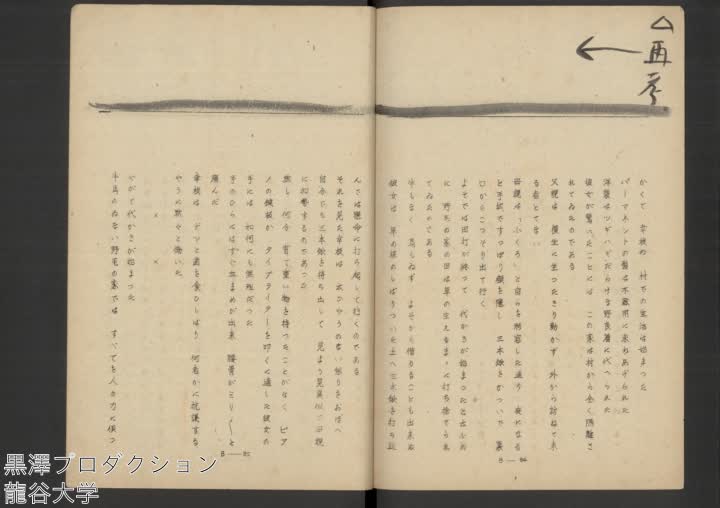 再考
かくて 幸枝の 村での生活は始まった
パーマネントの髪は不器用に束ねあげられた
洋装はツギハギだらけな野良着に代へられた
彼女が驚いたことには この家は村から全く隔離さ
れてゐたのである
父親は 櫃生に坐つたきり動かず 外から訪ねて来
る者とてない
母親は「ふくろう」と自らを形容した通り 夜になる
と手拭ですつぽり顔を隠し 三本鍬をかついで 裏
口からこつそり出て行く
よそでは田打が終って 代かきが始まつたと云ふの
に 野毛の家の田は草の生えたまゝに打ち捨てられ
てゐたのである
牛もなく 馬もゐず よそから借りることも出来ぬ
彼女は 草の根のしばりついた土へ三本鍬を打ち込
B—86
んでは懸命に打ち起して行くのである
それを見た幸枝は 火のやうな 怒りをおぼへ
自分でも三本鍬を持ち出して 見よう見真似に母親
に加勢するのであった
然し 何分 育て重い物を持つたことがなく ピア
ノの鍵盤か タイプライターを叩くに適した彼女の
手には 如何にも無理だつた
手のひらにはすぐ血まめが出来 腰骨がミリ〱と
痛んだ
幸枝は ヂツと歯を食ひしばり 何者かに抗議する
やうに黙々と働いた
× ×
やがて代かきが始まつた
牛馬のゐない野毛の家では すべてを人の力に俟つ
B—
黒澤プロダクション
龍谷大学